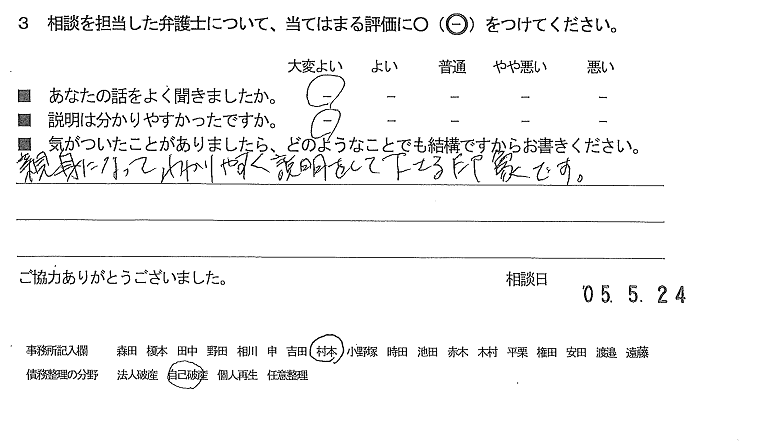 3 相談を担当した弁護士について、当てはまる評価に〇（㊀）をつけてください。
大変よい よい 普通 やや悪い 悪い
■ あなたの話をよく聞きましたか。 － － － － －
■ 説明は分かりやすかったですか。 － － － － －
■ 気がついたことがありましたら、どのようなことでも結構ですからお書きください。
親身になって わかりやすく説明をして下さる印象です。
ご協力ありがとうございました。 相談日 '05. 5. 24
事務所記入欄 森田 榎本 田中 野田 相川 申 吉田 村本 小野塚 時田 池田 赤木 木村 平栗 権田 安田 渡邉 遠藤
債務整理の分野 法人破産 自己破産 個人再生 任意整理